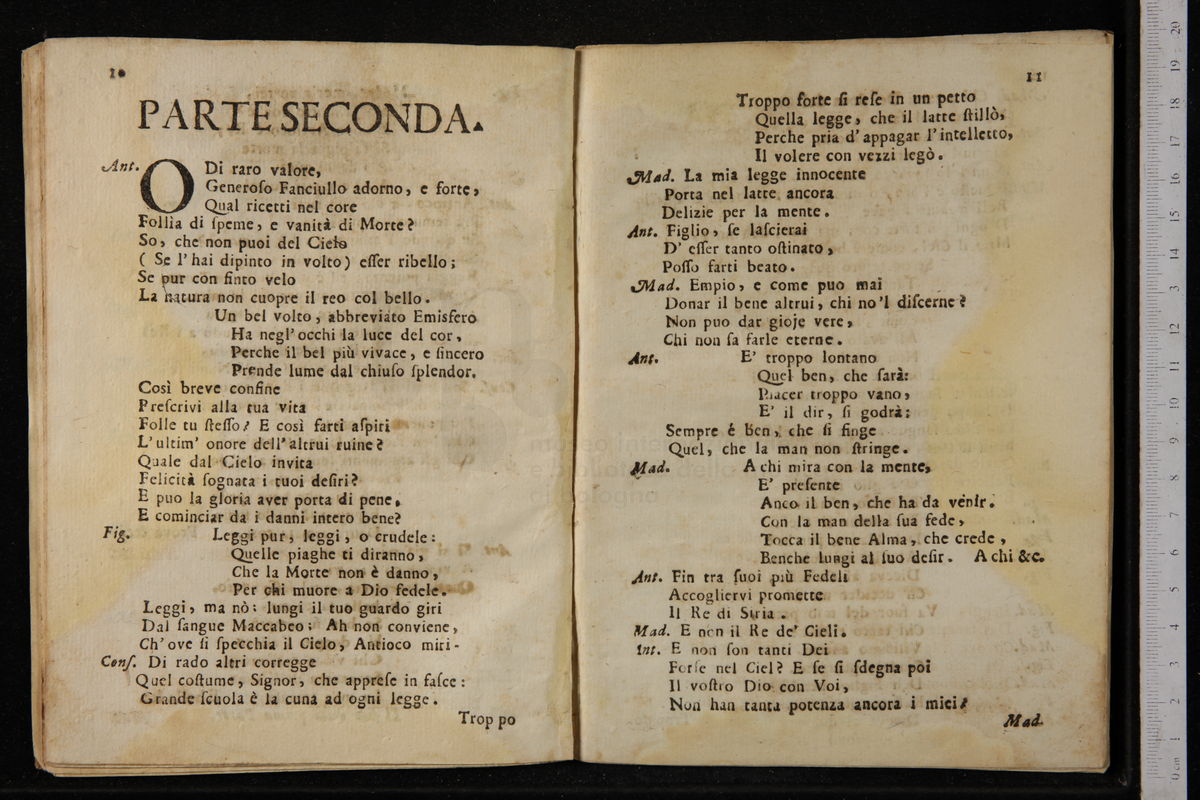 10
PARTE SECONDA.
Ant. O Di raro valore,
Generoſo Fanciullo adorno, e forte,
Qual ricetti nel core
Follìa di ſpeme, e vanità di Morte?
So, che non puoi del Cielo
( Se l'hai dipinto in volto) eſſer ribello;
Se pur con finto velo
La natura non cuopre il reo col bello.
Un bel volto, abbreviato Emisfero
Ha negl'occhi la luce del cor,
Perche il bel più vivace, e ſincero
Prende lume dal chiuſo ſplendor.
Così breve confine
Preſcrivi alla tua vita
Folle tu ſteſſo? E così farti aſpiri
L'ultim' onore dell'altrui ruine?
Quale dal Cielo invita
Felicità ſognata i tuoi deſiri?
E puo la gloria aver porta di pene,
E cominciar da i danni intero bene?
Fig. Leggi pur, leggi, o crudele:
Quelle piaghe ti diranno,
Che la Morte non è danno,
Per chi muore a Dio fedele.
Leggi, ma nò: lungi il tuo guardo giri
Dal ſangue Maccabeo; Ah non conviene,
Ch'ove ſi ſpecchia il Cielo, Antioco miri-
Conſ. Di rado altri corregge
Quel coſtume, Signor, che appreſe in faſce:
Grande ſcuola è la cuna ad ogni legge.
Trop po
11
Troppo forte ſi reſe in un petto
Quella legge, che il latte ſtillò,
Perche pria d'appagar l'intelletto,
Il volere con vezzi legò.
Mad. La mia legge innocente
Porta nel latte ancora
Delizie per la mente.
Ant. Figlio, ſe laſcierai
D' eſſer tanto oſtinato,
Poſſo farti beato.
Mad. Empio, e come puo mai
Donar il bene altrui, chi no'l diſcerne?
Non puo dar gioje vere,
Chi non ſa farle eterne.
Ant. E' troppo lontano
Quel ben, che ſarà:
Piacer troppo vano,
E' il dir, ſi godrà:
Sempre é Ben, che ſi finge
Quel, che la man non ſtringe.
Mad. A chi mira con la mente,
E' preſente
Anco il ben, che ha da venir.
Con la man della ſua fede,
Tocca il bene Alma, che crede,
Benche lungi al ſuo deſir. A chi &c.
Ant. Fin tra ſuoi più Fedeli
Accogliervi promette
Il Re di Siria.
Mad. E non il Re de' Cieli.
Int. E non ſon tanti Dei
Forſe nel Ciel? E ſe ſi ſdegna poi
Il voſtro Dio con Voi,
Non han tanta potenza ancora i miei?
Mad.